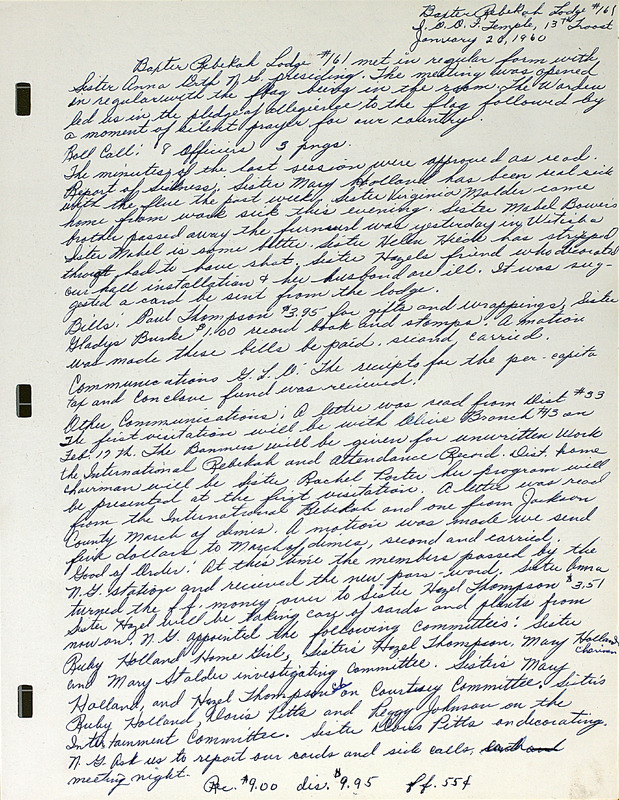 Baxter Rebekah Lodge #161
I.O.O.F. Temple, 13th Troost
January 20, 1960
Baxter Rebekah Lodge #161 met in regular form with
Sister Anna Orth N.G. presiding. The meeting was opened
in regular with the flag being in the room. The Warden
led us in the pledge of allegience to the flag followed by
a moment of silent prayer for our country.
Roll Call: 8 Officers 3 pngs.
The minutes of the last session were approved as read.
Report of Sickness, Sister Mary Holland has been real sick
with the flue the past week, Sister Virginia Malder came
home from work sick this evening. Sister Mabel Bowers
brother passed away the funural was yesterday in Witchita
Sister Mabel is some better. Sister Helen Heide has stripped
throat had to have shot. Sister Hazels friend who decorated
our hall installation & her husband are ill. It was sug-
gested a card be sent from the lodge.
Bills: Paul Thompson $3.95 for gifts and wrappings, Sister
Gladys Burke $1.00 record book and stamps. A motion
was made these bills be paid, second, carried.
Communications G.L.O. The reciepts for the per-capita
tax and Conclave fund was recieved.
Other Communications: A letter was read from Dist #33
The first visitation will be with Olive Branch #13 on
Feb. 17th. The Banners will be given for unwritten Work
the International Rebekah and Attendance Record. Dist. home
chairman will be Sister Rachel Porter her program will
be presented at the first visitation. A letter was read
from the International Rebekah and one from Jackson
County March of dimes. A motion was made we send
five dollars to March of dimes, second and carried.
Good of Order: At this time the members passed by the
N.G. station and recieved the new pass-word, Sister Anna
turned the f.f. money over to Sister Hazel Thompson $3.51
Sister Hazel will be taking care of cards and plants from
now on. N.G. appointed the following committees: Sister
Ruby Holland Home Girl, Sisters Hazel Thompson, Mary Holland
Chairman
and Mary Stalder investigating committee. Sisters Mary
Holland, and Hazel Thompson on Courtisey Committee. Sisters
Ruby Holland, Doris Pitts and Peggy Johnson on the
Intertainment Committee. Sister Doris Pitts on decorating.
N.G. ask us to report our cards and sick calls,
meeting night.
Rec. $9.00 dis. $9.95 f.f. 55¢